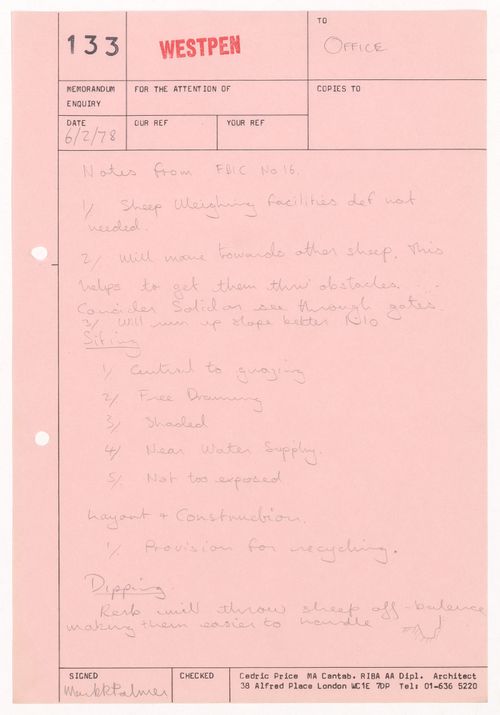 133
WESTPEN
TO
OFFICE
MEMORANDUM
ENQUIRY
FOR THE ATTENTION OF
COPIES TO
DATE
6/2/78
OUR REF
YOUR REF
Notes from FBIC No 16.
1/ Sheep Weighing facilities def not
needed.
2/ Will move towards other sheep. This
helps to get them thro' obstacles. ...
Consider Solid or see through gates.
3/ Will run up slope better 1 in 10
Siting
1/ Central to grazing
2/ Free Draining
3/ Shaded
4/ Near Water Supply.
5/ Not too exposed
Layout + Construction.
1/ Provision for recycling.
Dipping.
will throw sheep off-balance
making them easier to handle
SIGNED
Mark Palmer
CHECKED
Cedric Price MA Cantab. RIBA AA Dipl. Architect
38 Alfred Place London WC1E 7DP Tel: 01-636 5220